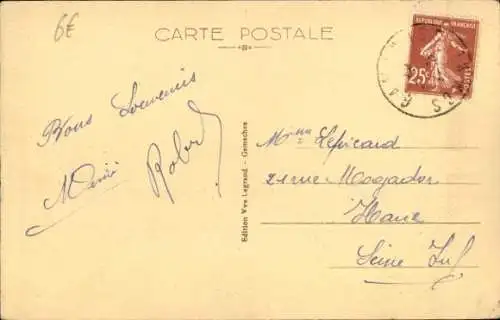 6€
CARTE POSTALE
REPUBLIQUE FRANÇAISE
25c
POSTES
Bons Souvenirs
Robert
Edition Vve Legrand - Gamaches
Mme Lepicard
21 rue Mogador
Havre
Seine Inf